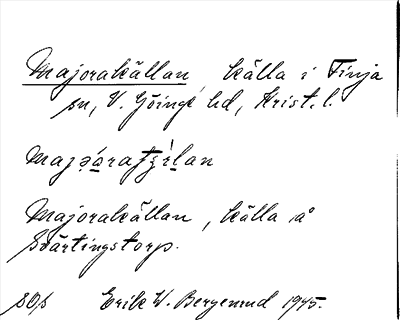 Majorakällan, källa i Finja
sn, V. Göinge hd, Krist. l.
Majorakällan, källa å
Svärtingstorp.
Erik W. Bergemud 1945.